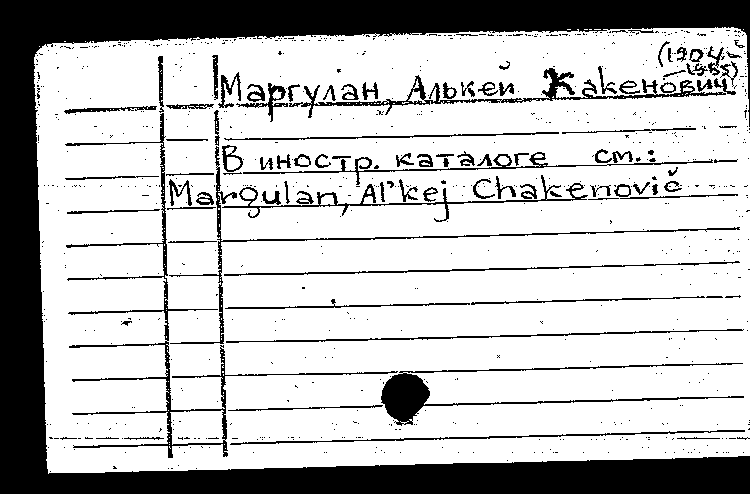 (1904-
-1985)
Маргулан, Алькей Какенович
В иностр. каталоге см.:
Margulan, Al'kej Chakenovič